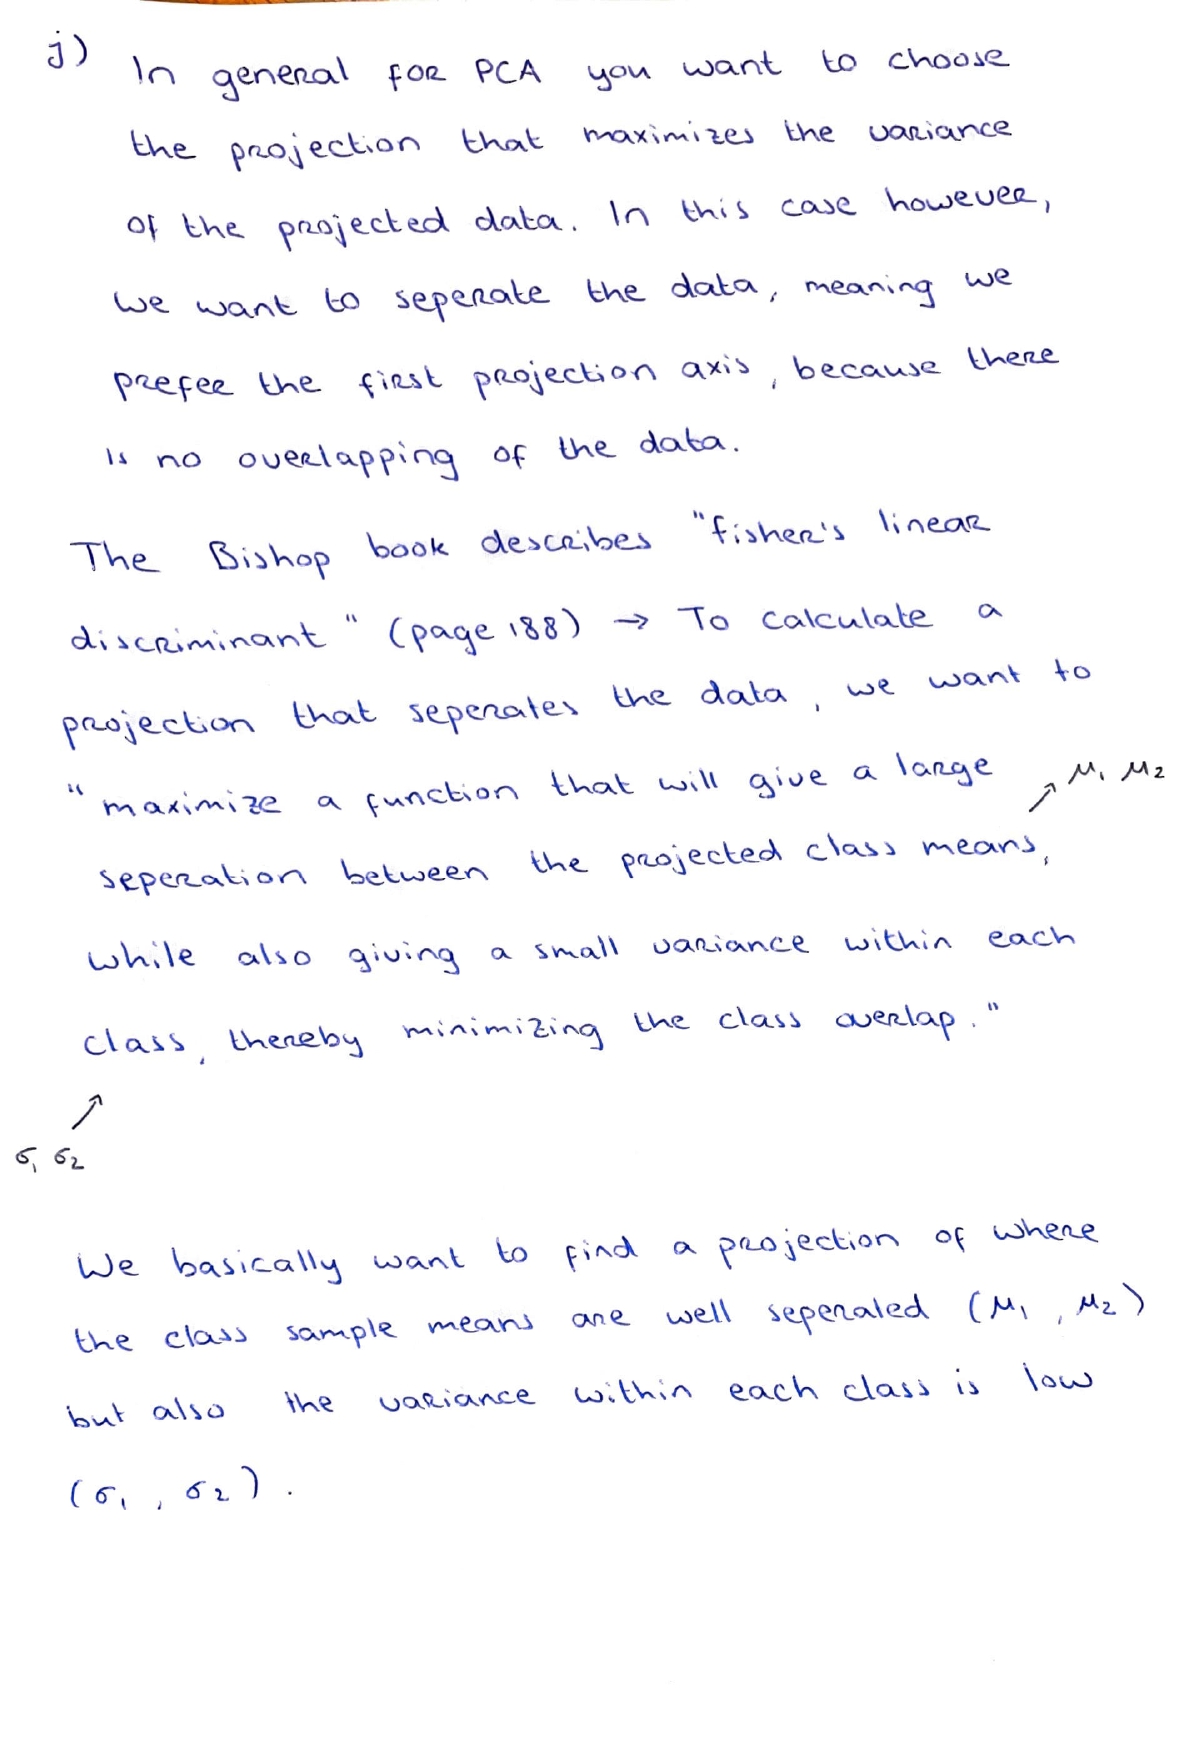 j)
In general for PCA you want to choose
the projection that maximizes the variance
of the projected data. In this case however,
we want to seperate the data, meaning we
prefer the first projection axis, because there
is no overlapping of the data.
The Bishop book describes "fisher's linear
discriminant" (page 188) → To calculate a
projection that seperates the data, we want to
"maximize a function that will give a large
μ₁ μ₂
seperation between the projected class means,
while also giving a small variance within each
class, thereby minimizing the class overlap."
σ₁ σ₂
We basically want to find a projection of where
the class sample means are well seperated (μ₁, μ₂)
but also the variance within each class is low
(σ₁, σ₂).